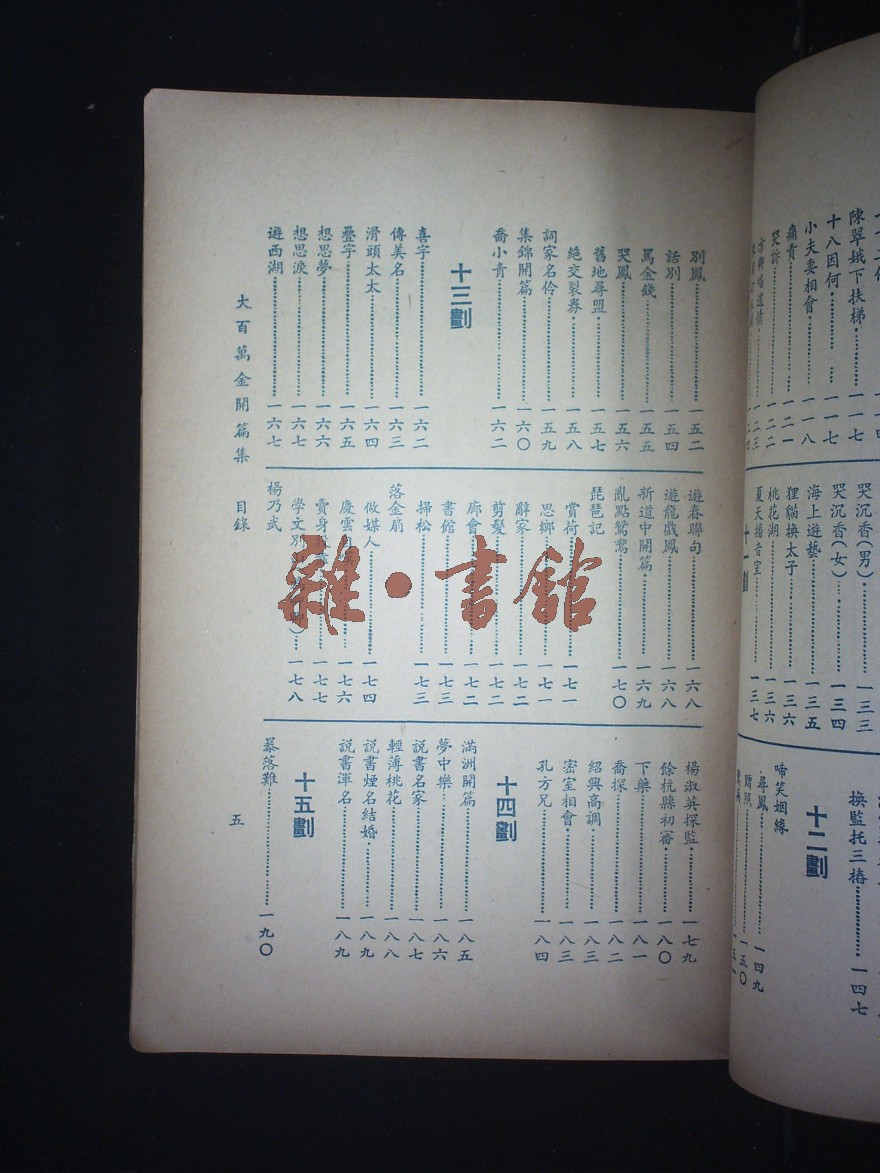 陳翠娥下扶梯……一一七
十八因何……一一七
小夫妻相會……一一八
痛責……一二一
哭訴……一二二
方卿唱道情……一二三
哭沉香(男)……一三三
哭沉香(女)……一三四
海上遊藝……一三五
狸貓換太子……一三六
桃花湖……一三六
夏天播音室……一三七
十一劃
換監托三樁……一四七
十二劃
啼笑姻緣
尋鳳……一四九
贈照……一五〇
別鳳……一五二
話別……一五四
罵金錢……一五五
哭鳳……一五六
舊地尋盟……一五七
絶交裂券……一五八
詞家名伶……一五九
集錦開篇……一六〇
喬小青……一六二
十三劃
喜字……一六二
傳美名……一六三
滑頭太太……一六四
疊字……一六五
想思夢……一六六
想思淚……一六七
遊西湖……一六七
遊春聯句……一六八
遊龍戲鳳……一六八
新道中開篇……一六九
亂點鴛鴦……一七〇
琵琶記
賞荷……一七一
思鄉……一七一
辭家……一七二
剪髮……一七二
廊會……一七二
書館……一七三
掃松……一七三
落金扇
做媒人……一七四
慶雲……一七六
賣身……一七七
學文別……一七八
楊乃武
楊淑英探監……一七九
餘杭縣初審……一八〇
下藥……一八一
喬探……一八二
紹興高調……一八三
密室相會……一八三
孔方兄……一八四
十四劃
滿洲開篇……一八五
夢中樂……一八六
說書名家……一八七
輕薄桃花……一八八
說書煙名結婚……一八九
說書渾名……一八九
十五劃
暴落難……一九〇
大百萬金開篇集 目錄
五
雜·書館